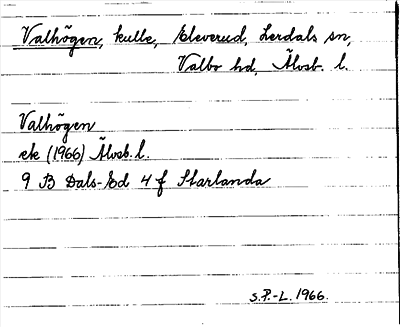 Valhögen, kulle, Eleverud, Lerdals sn,
Valbo hd, Älvsb. l.
Valhögen
ek (1966) Älvsb. l.
9 B Dals-Ed 4 f Starlanda
S.P.-L. 1966.